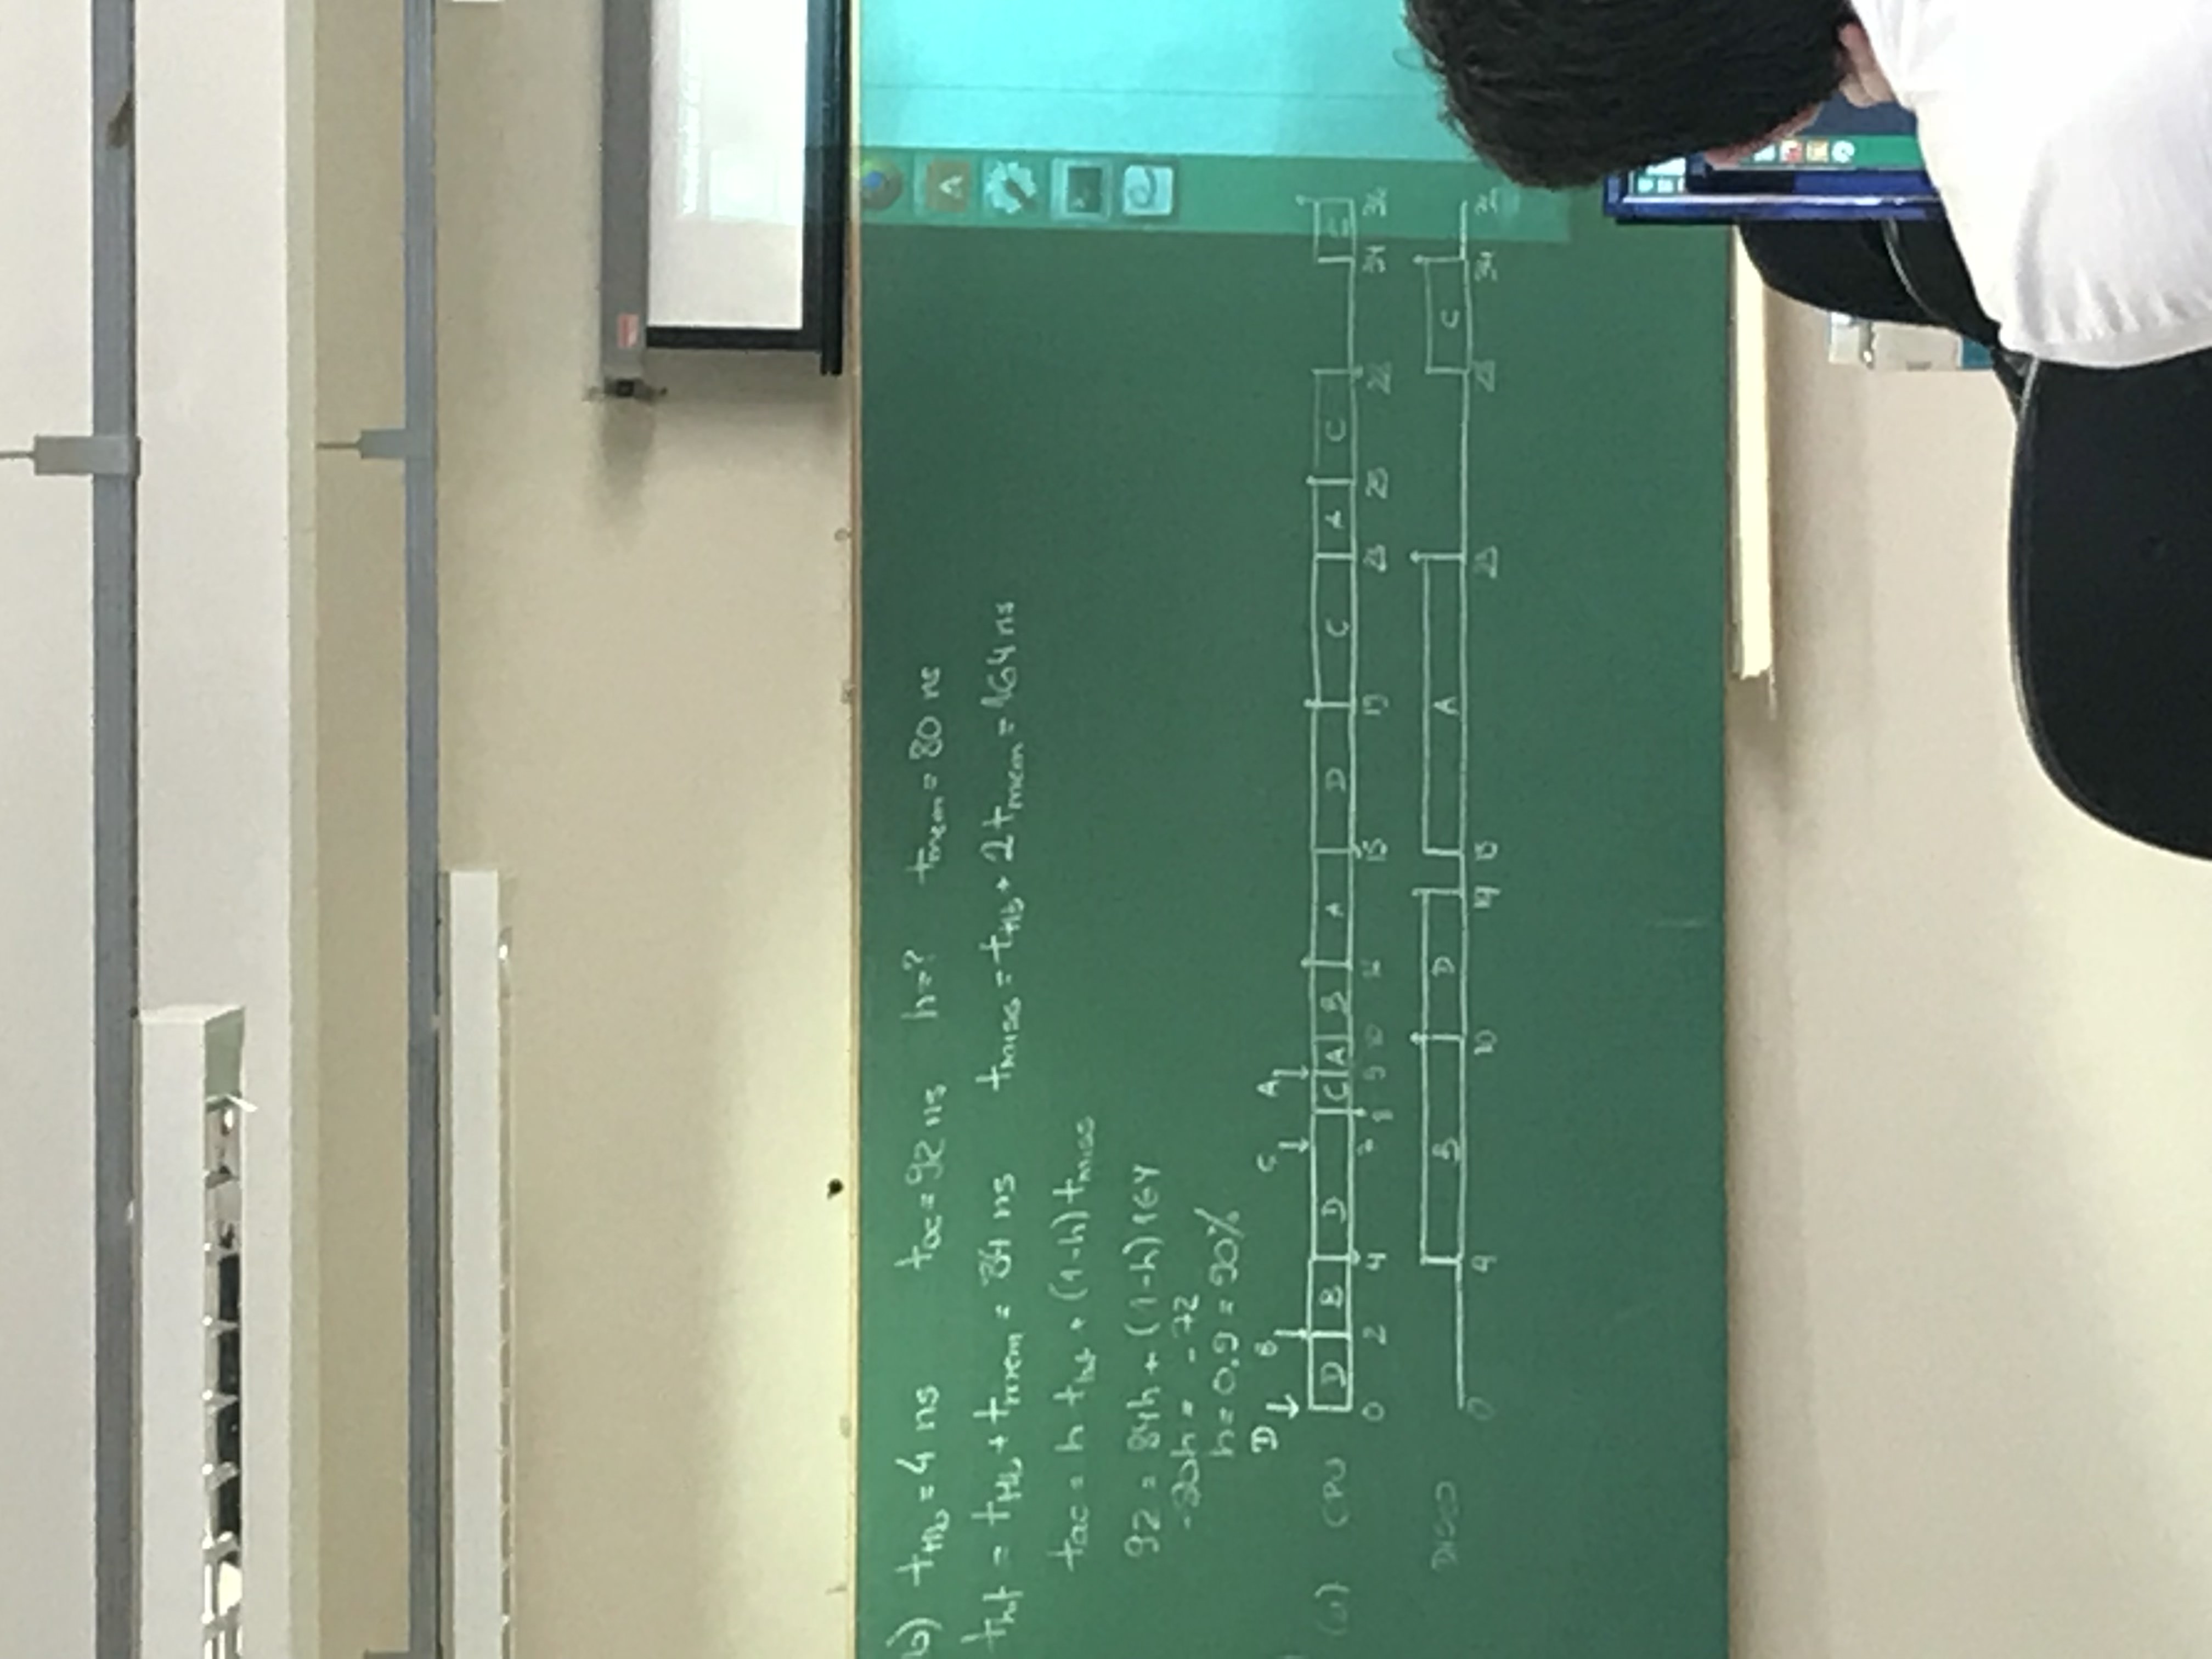 b) tTLB = 4 ns tac = 92 ns h=? tmem = 80 ns
thit = tTLB + tmem = 84 ns tmiss = tTLB + 2 tmem = 164 ns
tac = h thit + (1-h) tmiss
92 = 84h + (1-h) 164
-80h = -72
h = 0.9 = 90%
D B C A
(a) CPU D B D C A B A D C A C
0 2 4 7 8 9 10 15 19 23 25 34
DISCO B D A C
0 4 10 14 15 23 34